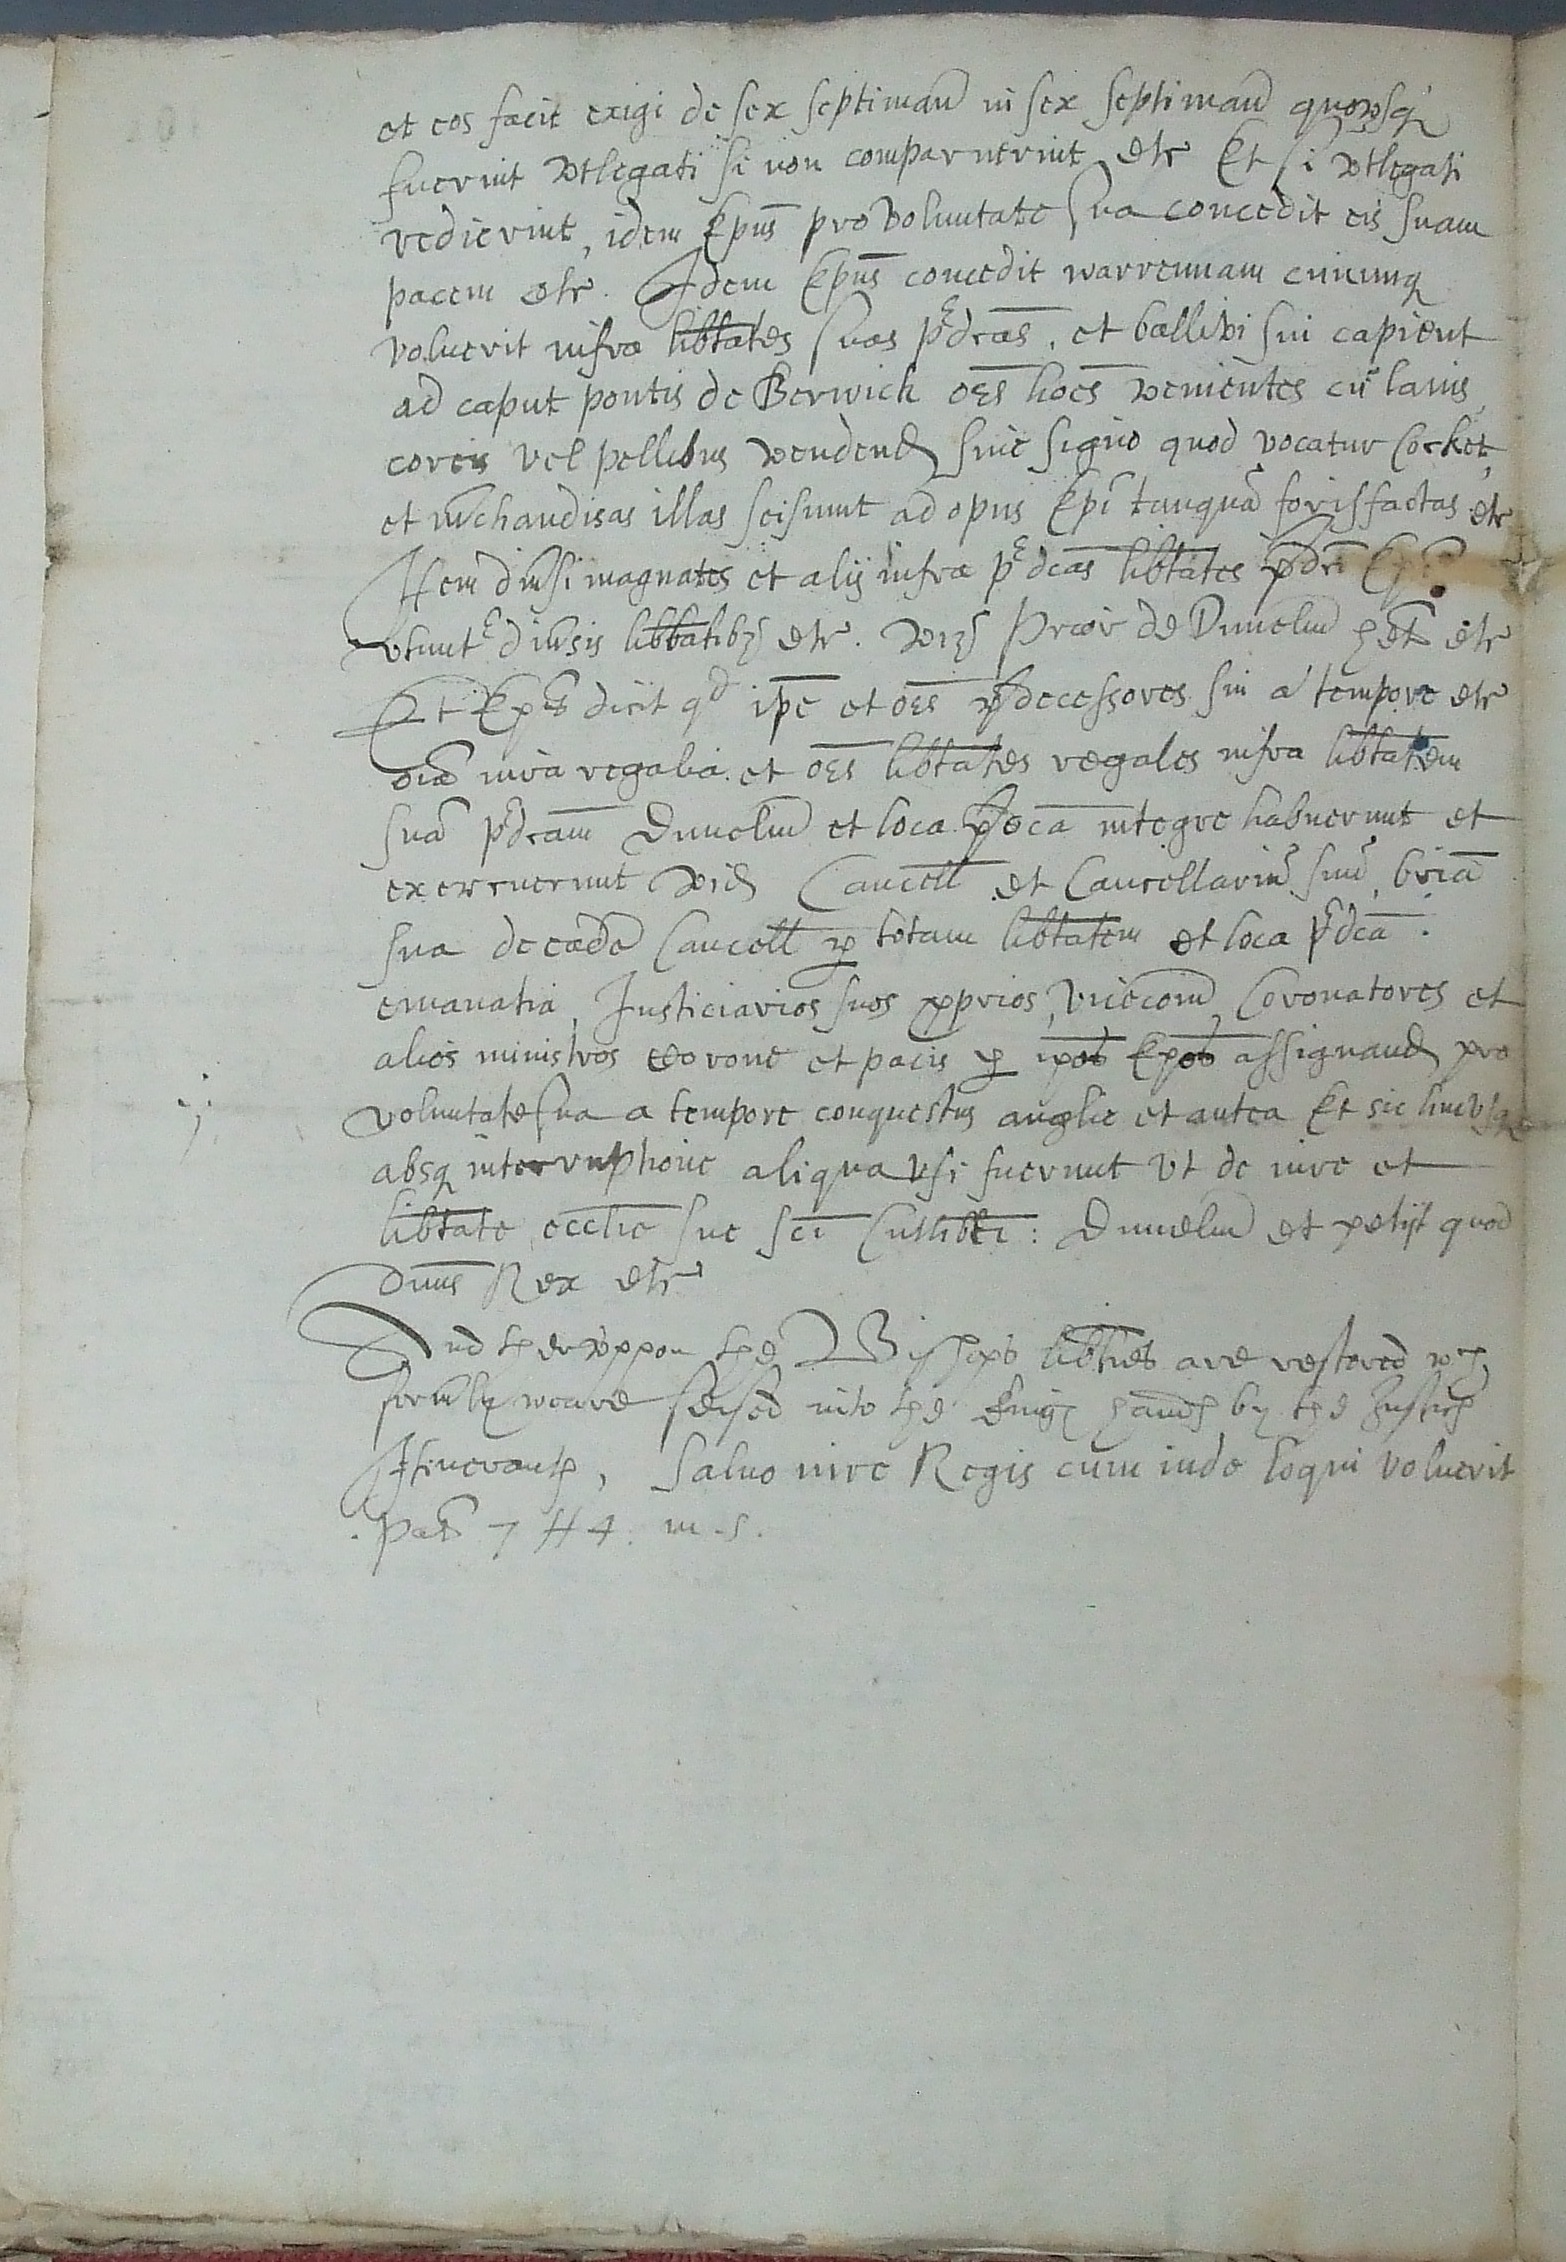 et eos facit exigi de sex septimañ in sex septimañ quowsq
fuerint vtlegati si non comparuerint etc Et si vtlegati
redierint, idem Ep̃us pro voluntate sua concedit eis suam
pacem etc. Idem Ep̃us concedit warrennam cuicunq
voluerit infra lib̃tates suas p̃dc̃as, et ballivi sui capient
ad caput pontis de Berwick oẽs hoẽs venientes cũ lanis,
coreis vel pellibus vendend sine signo quod vocatur Cocket,
et m̃chandisas illas seisiunt ad opus Ep̃i tanquã forisfactas etc
Item diũsi magnates et alij infra p̃dc̃as lib̃tates p̃dc̃i
vtunt diũsis lib̃tatibȝ etc. viȝ Prior de Dunelm̃ het etc
Et Ep̃us dicit qd ip̃e et oẽs p̃decessores sui a tempore etc
oĩa iura regalia et oẽs lib̃tates regales infra lib̃tatem
suã p̃dc̃am Dunelm̃ et loca p̃dc̃a integre habuerunt et
exercuerunt vid Cancell̃ et Cancellariũ suũ, br̃ia
sua de eadẽ Cancell̃ p totam lib̃tatem et loca p̃dc̃a
emanatia, Justiciarios suos pprios, vicecom̃, Coronatores et
alios ministros corone et pacis p ip̃os Ep̃os assignand pro
voluntate sua a tempore conquestus anglie et antea Et sic hucvsq
absq interruptione aliqua vsi fuerunt vt de iure et
lib̃tate eccl̃ie sue sc̃i Cuthb̃ti: Dunelm̃ et petijt quod
dñus Rex etc
And thervppon the Bishops lib̃ties are restored wch
form̃ly weare seised into the kings hands by the Justices
Itinerants, saluo iure Regis cum inde loqui voluerit
pat 7 H 4. m. 5.